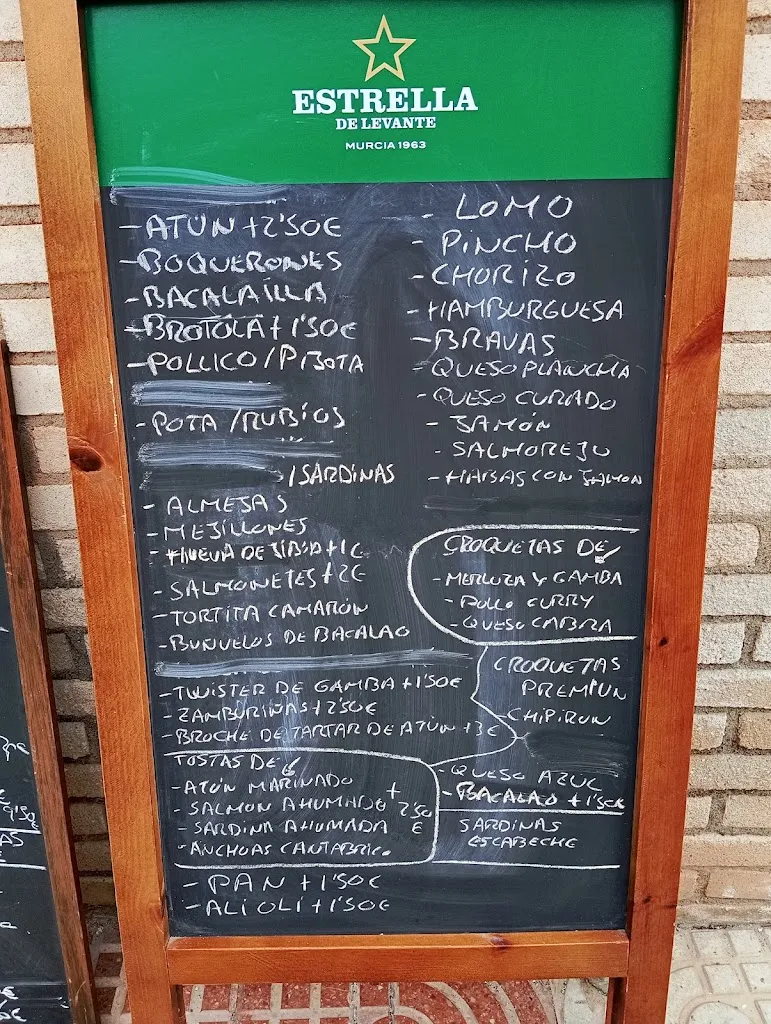 ESTRELLA
DE LEVANTE
MURCIA 1963
- ATÚN +2'50€
- BOQUERONES
- BACALAÍLLA
- BROTOLA +1'50€
- POLLICO / PIBOTA
- POTA / RUBIOS
/ SARDINAS
- ALMEJAS
- MEJILLONES
- HUEVA DE JIBIA +1€
- SALMONETES +2€
- TORTITA CAMARÓN
- BUÑUELOS DE BACALAO
- TWISTER DE GAMBA +1'50€
- ZAMBURIÑAS +2'50€
- BROCHE DE TARTAR DE ATÚN +3€
TOSTAS DE
- ATÚN MARINADO
- SALMON AHUMADO
- SARDINA AHUMADA
- ANCHOAS CANTABRICO
+
2'50
€
- PAN +1'50€
- ALIOLI +1'50€
- LOMO
- PINCHO
- CHORIZO
- HAMBURGUESA
- BRAVAS
- QUESO PLANCHA
- QUESO CURADO
- JAMÓN
- SALMOREJO
- HABAS CON JAMON
CROQUETAS DE
- MERLUZA Y GAMBA
- POLLO CURRY
- QUESO CABRA
CROQUETAS
PREMIUN
- CHIPIRON
- QUESO AZUL
- BACALAO +1'50€
SARDINAS
ESCABECHE